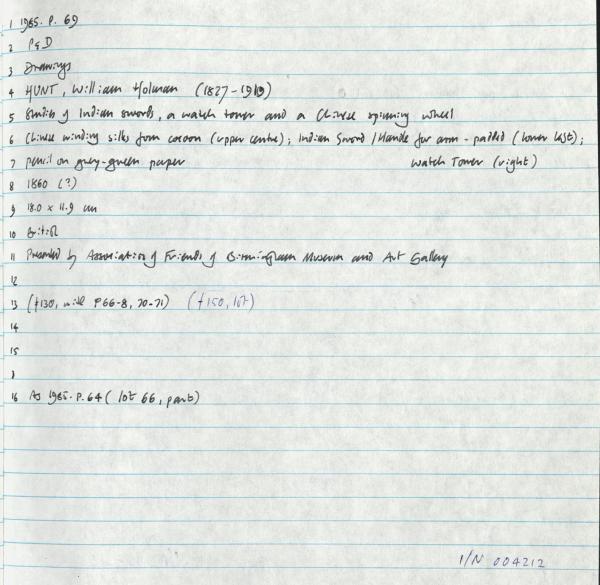 1 1985. P. 69
2 P&D
3 Drawings
4 HUNT, William Holman (1827-1910)
5 Studies of Indian swords, a watch tower and a Chinese spinning wheel
6 Chinese winding silks from cocoon (upper centre); Indian Sword / Handle for arm - padded (lower left);
7 pencil on grey-green paper watch Tower (right)
8 1860 (?)
9 18.0 x 11.9 cm
10 British
11 Presented by Association of Friends of Birmingham Museum and Art Gallery
12
13 (£130, with P66-8, 70-71) (£150, lot)
14
15
16 As 1985. P. 64 (lot 66, part)
I/N 004212